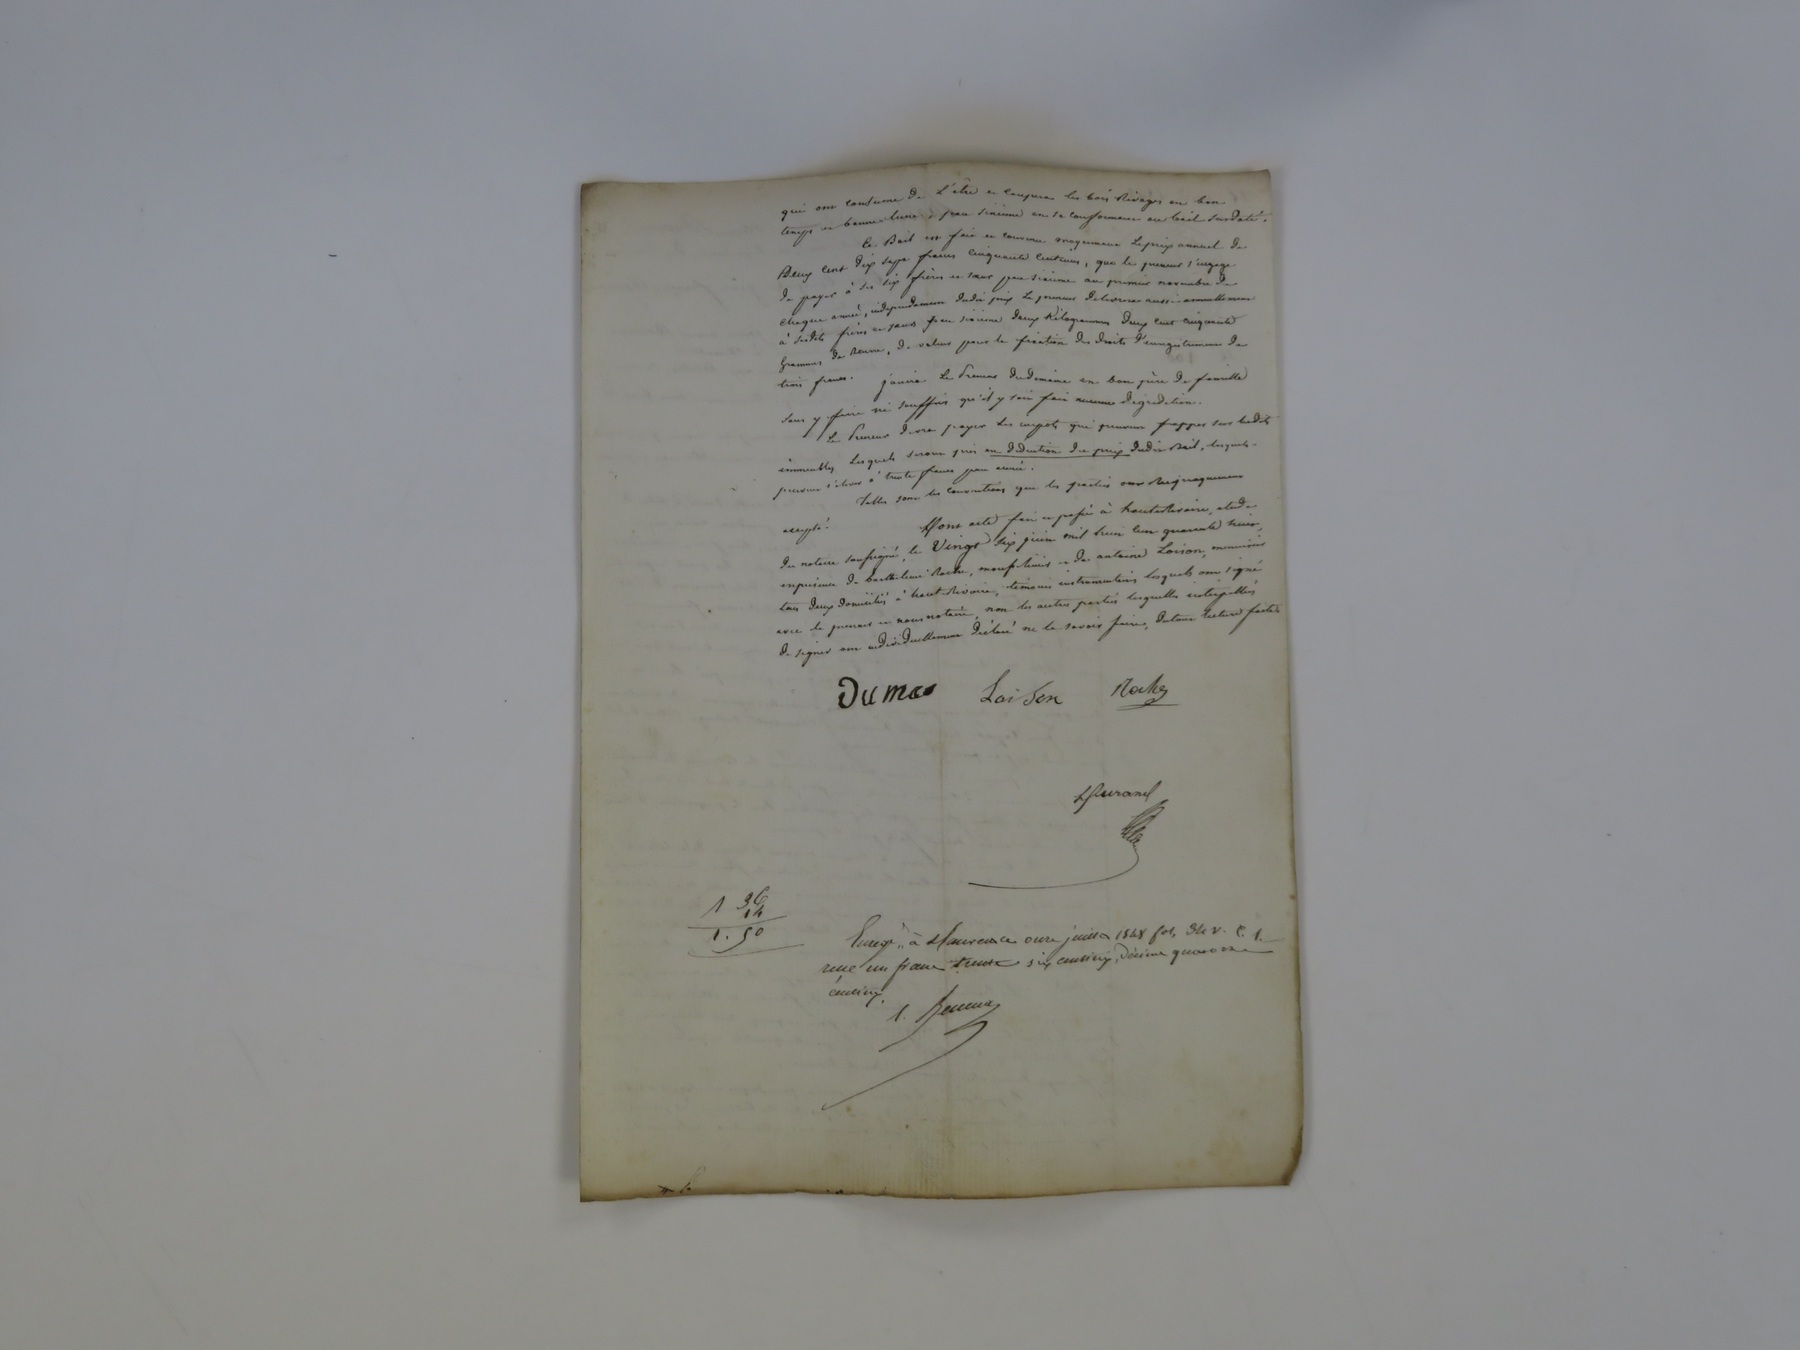 qui ont coutume de l'être et couper les bois Rivages en bon
temps et bonne lune le preneur en se conformera au bail susdaté.
Ce Bail est fait et convenu moyennant le prix annuel de
Deux cent dix sept francs cinquante centimes, que le preneur s'engage
de payer à ses six frères et sœurs par sixième au premier novembre de
chaque année, indépendament dudit prix le preneur délivrera aussi annuellement
à sesdits frères et sœurs par sixième deux Kilogrammes deux cent cinquante
grammes de Beurre, de valeur pour la fixation des droits d'enregistrement de
trois francs. jouira le Preneur du domaine en bon père de famille
sans y faire ni souffrir qu'il y soit fait aucune dégradation.
Le Preneur devra payer les impots qui peuvent frapper sur lesdits
immeubles, lesquels seront pris en déduction du prix dudit Bail, lesquels
peuvent s'élever à trente francs par année.
Telles sont les conventions que les parties ont Réciproquement
accepté.
Dont acte fait et passé à hauterivoire, étude
du notaire soussigné, le Vingt six juin mil huit cent quarante huit,
en présence de barthélemi Roche, et de antoine Loison, menuisier
tous deux domiciliés à haute Rivoire, témoins instrumentaires lesquels ont signé
avec le preneur et nous notaire, non les autres parties lesquelles interpellées
de signer ont individuellement déclaré ne le savoir faire, du tout lecture faite.
Dumas Loison Roche
Durand
1 36
14
1. 50
Enregé à St Laurent le onze juillet 1848 fol. 34 v. C. 1.
reçu un franc trente six centimes, décime quatorze
centimes.